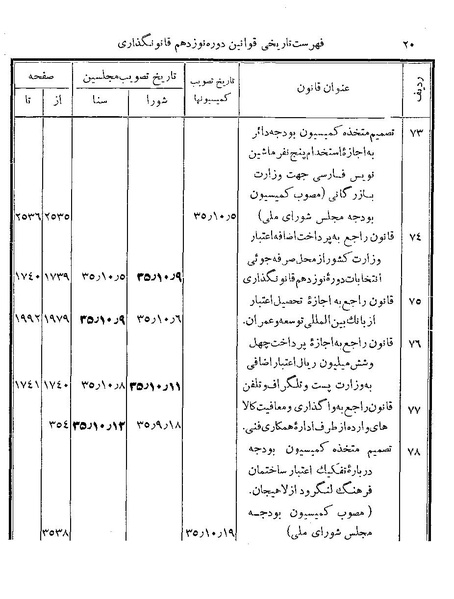 ۲۰ فهرست تاریخی قوانین دوره نوزدهم قانونگذاری
ردیف عنوان قانون تاریخ تصویب کمیسیونها تاریخ تصویب مجلسین صفحه
شورا سنا از تا
۷۳ تصمیم متخذه کمیسیون بودجه دائر
به اجازهٔ استخدام پنج نفر ماشین
نویس فارسی جهت وزارت
بازرگانی (مصوب کمیسیون
بودجه مجلس شورای ملی) ۳۵ر۱۰ر۵ ۲۵۳۵ ۲۵۳۶
۷۴ قانون راجع به پرداخت اضافه اعتبار
وزارت کشور از محل صرفه جوئی
انتخابات دورهٔ نوزدهم قانونگذاری ۳۵ر۱۰ر۹ ۳۵ر۱۰ر۵ ۱۷۳۹ ۱۷۴۰
۷۵ قانون راجع به اجازهٔ تحصیل اعتبار
از بانک بین المللی توسعه وعمران. ۳۵ر۱۰ر۶ ۳۵ر۱۰ر۹ ۱۹۷۹ ۱۹۹۲
۷۶ قانون راجع به اجازهٔ پرداخت چهل
وشش میلیون ریال اعتبار اضافی
به وزارت پست وتلگراف وتلفن ۳۵ر۱۰ر۱۱ ۳۵ر۱۰ر۸ ۱۷۴۰ ۱۷۴۱
۷۷ قانون راجع به واگذاری ومعافیت کالا
های وارده از طرف ادارهٔ همکاری فنی. ۳۵ر۹ر۱۸ ۳۵ر۱۰ر۱۲ ۳۵٤
۷۸ تصمیم متخذه کمیسیون بودجه
دربارهٔ تفکیک اعتبار ساختمان
فرهنگ لنگرود از لاهیجان.
( مصوب کمیسیون بودجه
مجلس شورای ملی) ۳۵ر۱۰ر۱۹ ۳۵۳۸